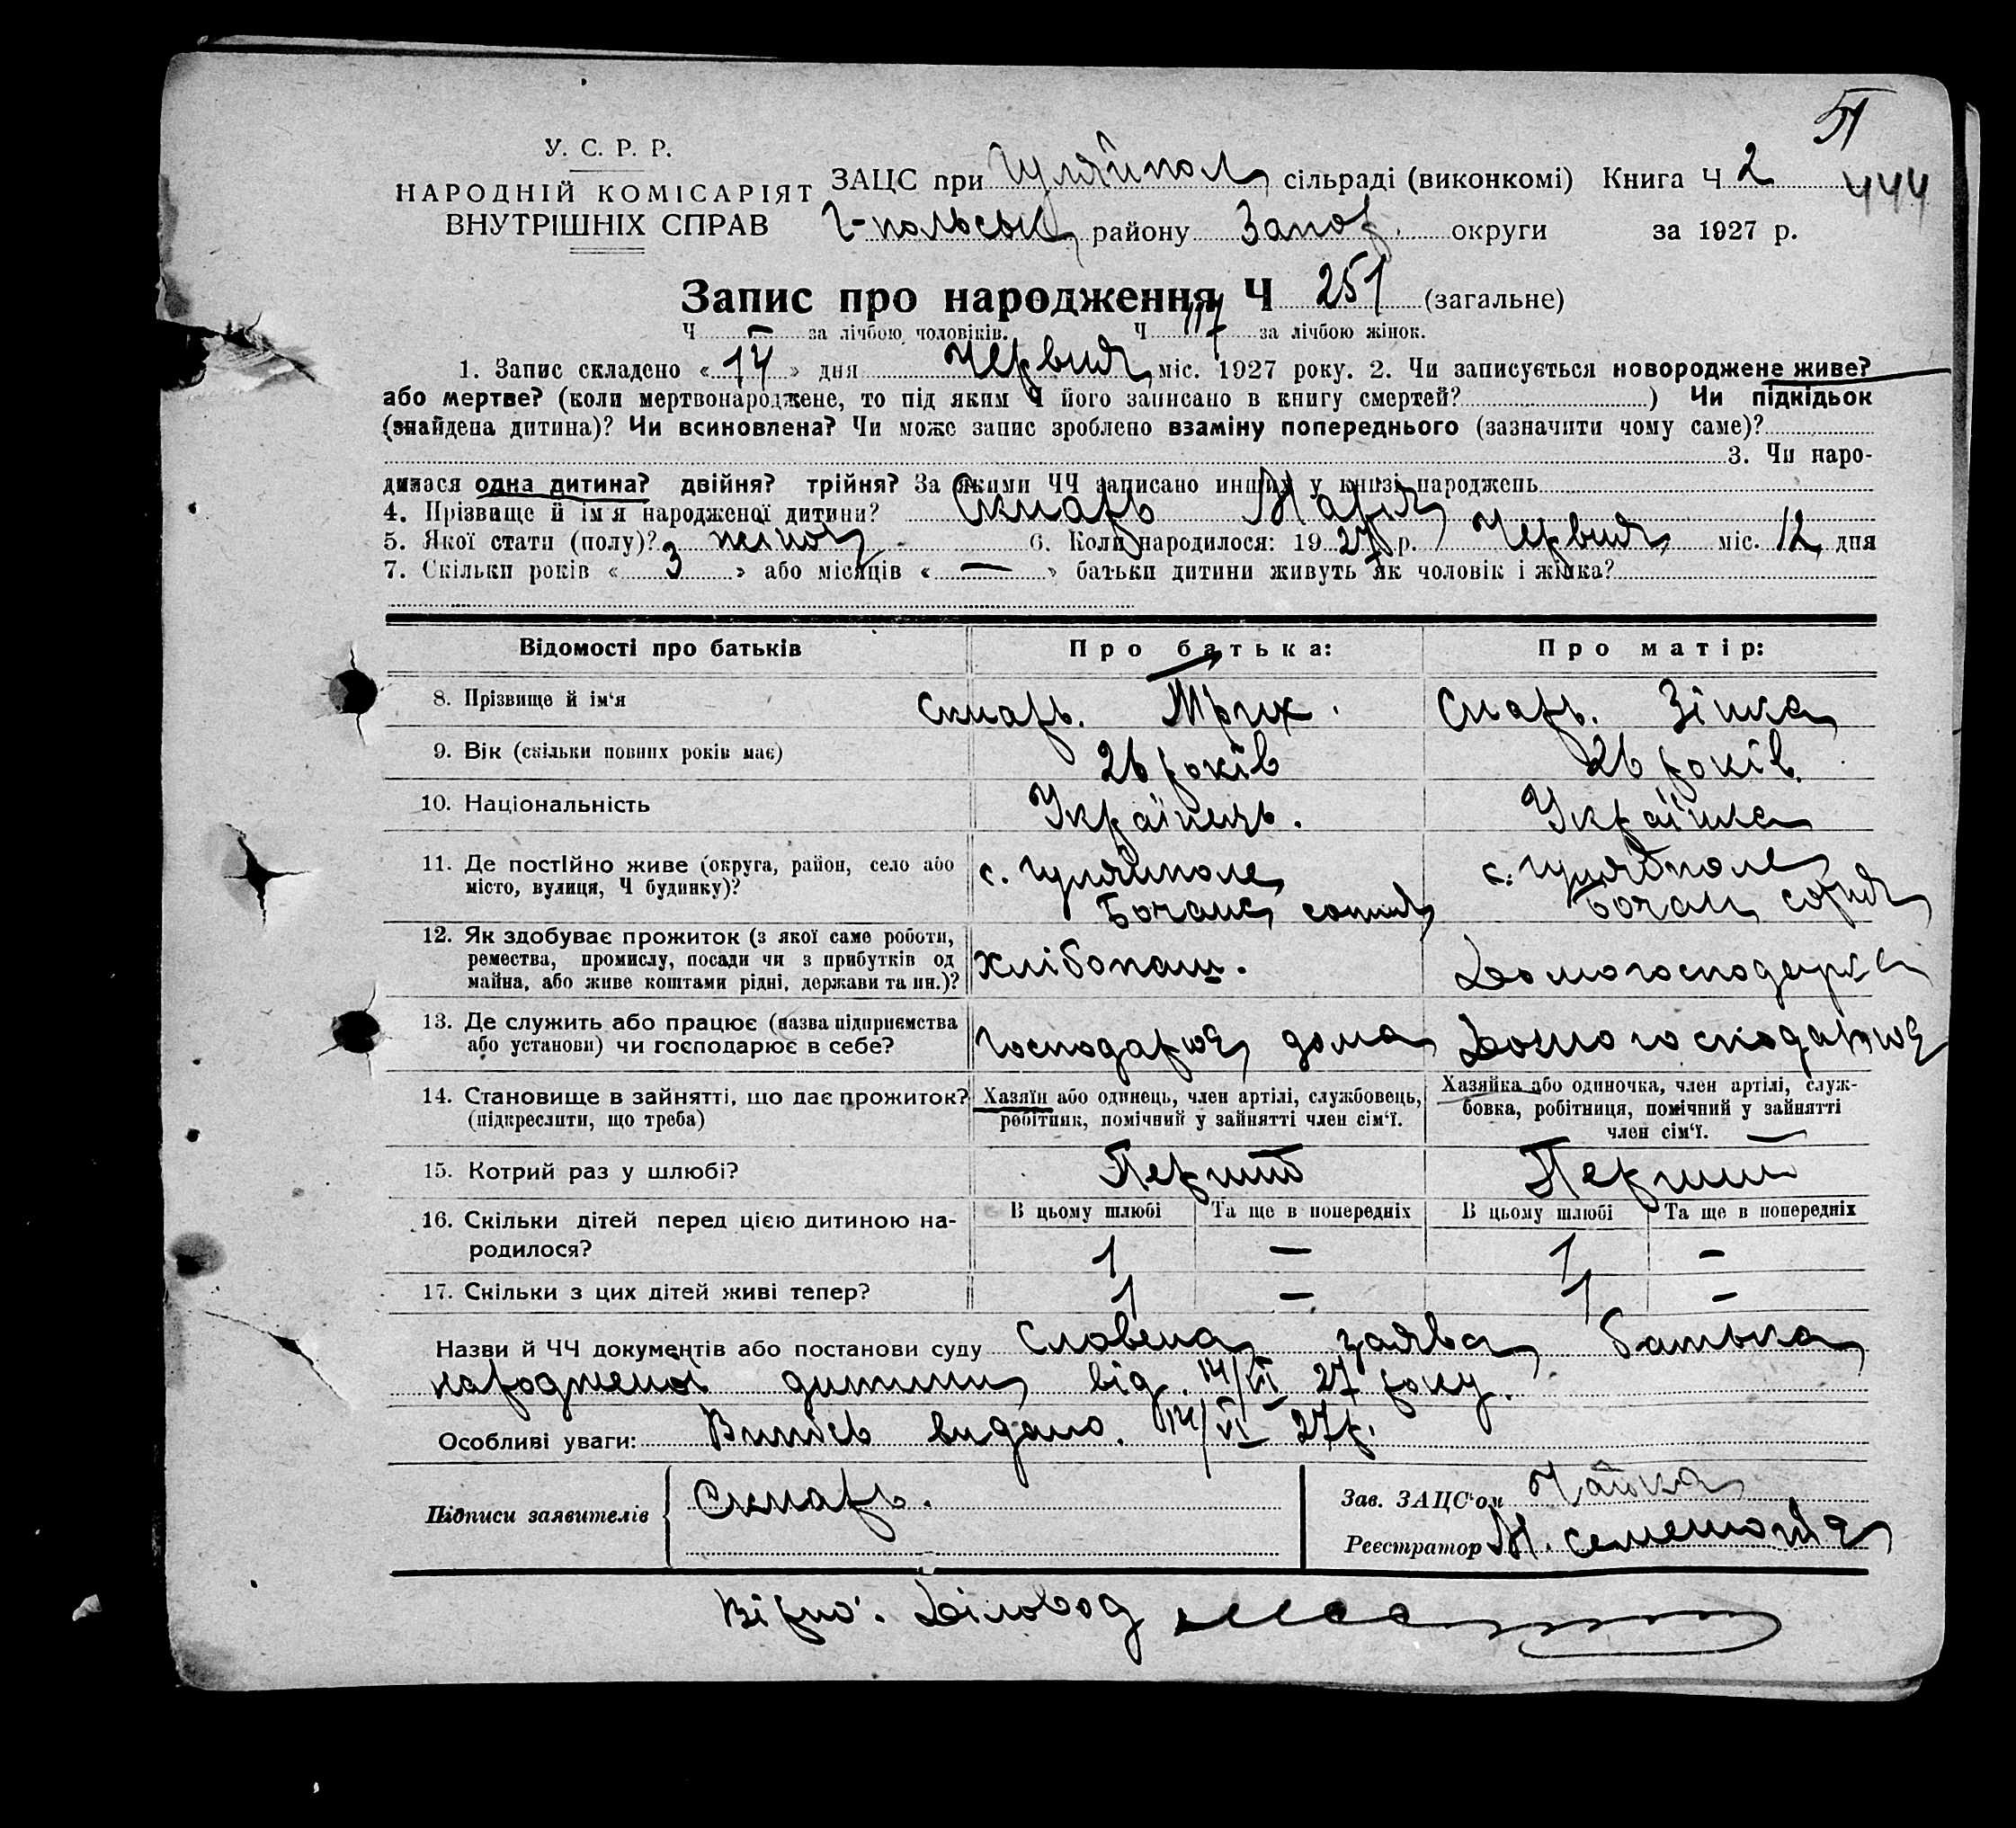 444
У. С. Р. Р.
НАРОДНІЙ КОМІСАРІЯТ
ВНУТРІШНІХ СПРАВ
ЗАЦС при Гуляйпол сільраді (виконкомі) Книга Ч 2
Г-польськ району Запор. округи за 1927 р.
Запис про народження Ч 251 (загальне)
Ч — за лічбою чоловіків. Ч 117 за лічбою жінок.
1. Запис складено «14» дня Червня міс. 1927 року. 2. Чи записується новороджене живе?
або мертве? (коли мертвонароджене, то під яким Ч його записано в книгу смертей? ) Чи підкідьок
(знайдена дитина)? Чи всиновлена? Чи може запис зроблено взаміну попереднього (зазначити чому саме)?
3. Чи наро-
дилася одна дитина? двійня? трійня? За якими ЧЧ записано инших у книзі народжень
4. Прізвище й ім'я народженої дитини? Скнарь Марія
5. Якої стати (полу)? жіноч 6. Коли народилося: 1927 р. Червня міс. 12 дня
7. Скільки років «3» або місяців «—» батьки дитини живуть як чоловік і жінка?
Відомості про батьків Про батька: Про матір:
8. Прізвище й ім'я Скнарь. Снарь. Зінка
9. Вік (скільки повних років має) 26 років 26 років.
10. Національність Українець. Українка
11. Де постійно живе (округа, район, село або с. Гуляйполе с. Гуляйполе
місто, вулиця, Ч будинку)? Бочанс сотня Бочан сотня
12. Як здобуває прожиток (з якої саме роботи,
ремества, промислу, посади чи з прибутків од Хлібопаш. Домогосподарка
майна, або живе коштами рідні, держави та ин.)?
13. Де служить або працює (назва підприємства
або установи) чи господарює в себе? Господарює дома Домогосподарює
14. Становище в зайнятті, що дає прожиток? Хазяїн або одинець, член артілі, службовець, Хазяйка або одиночка, член артілі, служ-
(підкреслити, що треба) робітник, помічний у зайнятті член сім'ї. бовка, робітниця, помічний у зайнятті
член сім'ї.
15. Котрий раз у шлюбі? Перший Перший
16. Скільки дітей перед цією дитиною на- В цьому шлюбі Та ще в попередніх В цьому шлюбі Та ще в попередніх
родилося? 1 — 1 —
17. Скільки з цих дітей живі тепер? 1 — 1 —
Назви й ЧЧ документів або постанови суду Словена заява батька
народженої дитини від 14/VI 27 року.
Особливі уваги: Випись видано. 14/VI 27р.
Підписи заявителів Скнарь.
Зав. ЗАЦС'ом Чайка
Реєстратор
Вірно: Діловод